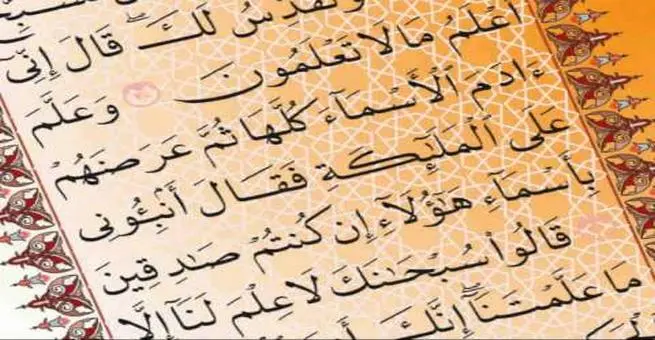 وَنُقَدِّسُ لَكَ ۖ قَالَ إِنِّىٓ
أَعْلَمُ مَا لَا تَعْلَمُونَ ۝ وَعَلَّمَ
ءَادَمَ ٱلْأَسْمَآءَ كُلَّهَا ثُمَّ عَرَضَهُمْ
عَلَى ٱلْمَلَٰٓئِكَةِ فَقَالَ أَنۢبِـُٔونِى
بِأَسْمَآءِ هَٰٓؤُلَآءِ إِن كُنتُمْ صَٰدِقِينَ
قَالُوا۟ سُبْحَٰنَكَ لَا عِلْمَ لَنَآ إِلَّا
مَا عَلَّمْتَنَآ ۖ إِنَّكَ